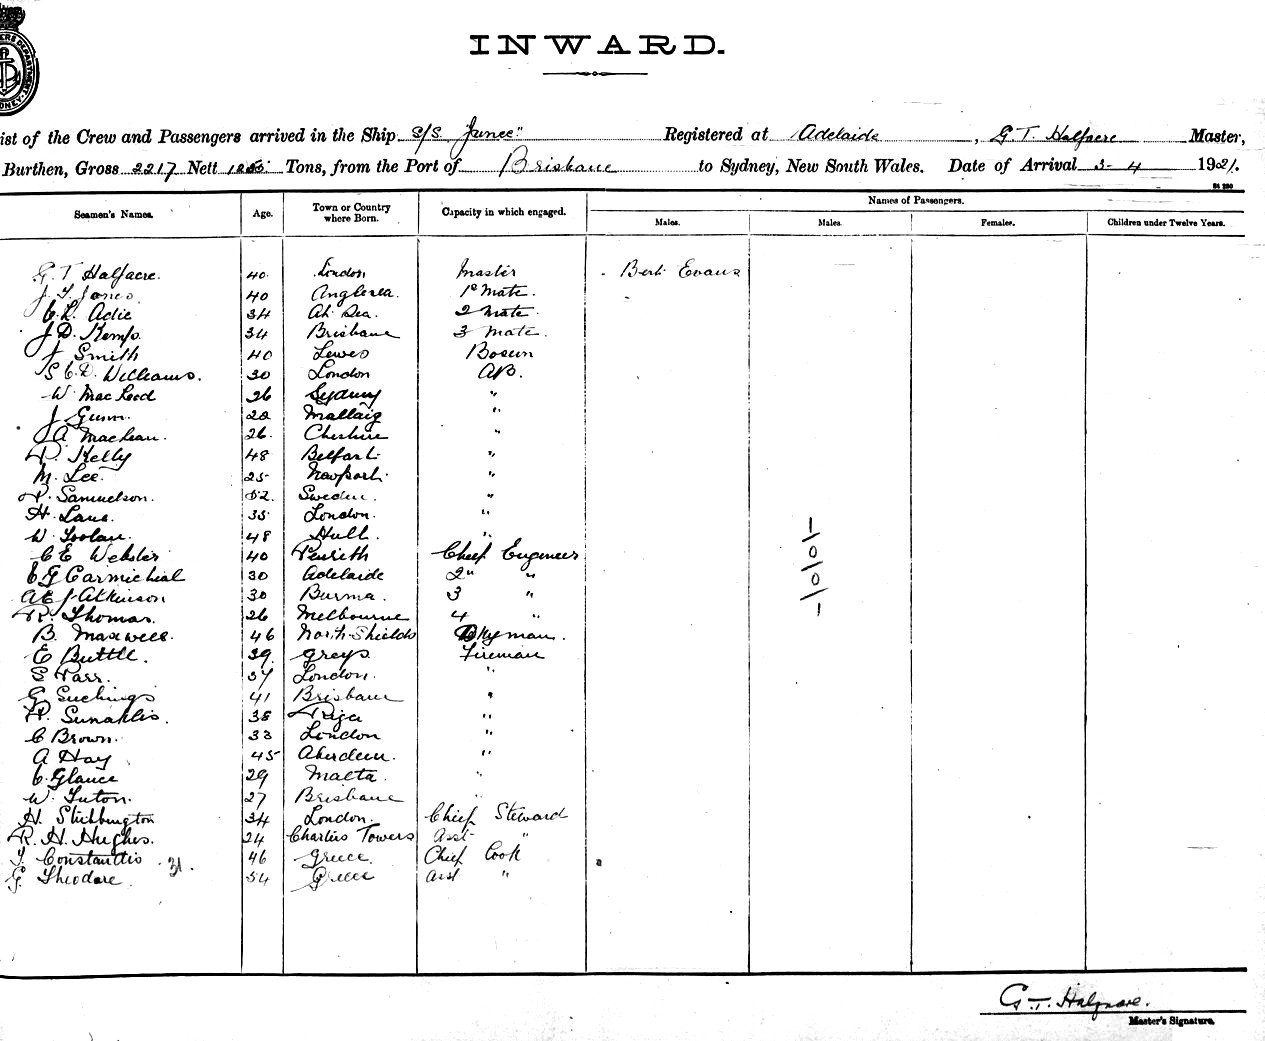 INWARD.
ist of the Crew and Passengers arrived in the Ship S/S "Junee" Registered at Adelaide, G. T. Halfacre Master,
Burthen, Gross 2217 Nett Tons, from the Port of Brisbane to Sydney, New South Wales. Date of Arrival 3-4 1921.
Seamen's Names. Age. Town or Country where Born. Capacity in which engaged. Names of Passengers.
Males. Males. Females. Children under Twelve Years.
G. T Halfacre. 40. London Master Bert Evans
J. Y. Jones 40 Anglesea. 1st Mate.
C. R. Adie 34 At Sea. 2 Mate.
J. D. Kemp. 34 Brisbane 3 Mate.
J Smith 40 Lewes Bosun
S C. D. Williams. 30 London AB.
W. MacLeod 26 Sydney "
J Gunn. 22 Mallaig "
J A MacLean. 26. Cheshire "
P. Kelly 48 Belfast "
M. Lee. 25 Newport. "
P. Samuelson. 52. Sweden. "
H. Lane. 35 London. "
W Toolan. 48 Hull "
C E Webster 40 Penrith Chief Engineer
C G Carmichial 30 Adelaide 2" "
A E J Atkinson 30 Burma. 3 "
R. Thomas. 26 Melbourne 4 "
B. Maxwell. 46 North Shields Dkyman.
E Buttle. 39. Grays. Fireman
S Parr. 37 London. "
G Suckings 41 Brisbane "
P. Sunaklis. 38 Riga "
C Brown. 33 London "
A Hay 45 Aberdeen. "
C. Glance 29 Malta. "
W. Tuton. 27 Brisbane "
H. Stubbington 34 London. Chief Steward
R. H. Hughes. 24 Charters Towers Asst "
T. Constantis 46 Greece. Chief Cook
31.
G. Theodore. 54 Greece Asst "
G. T. Halfacre.
Master's Signature.